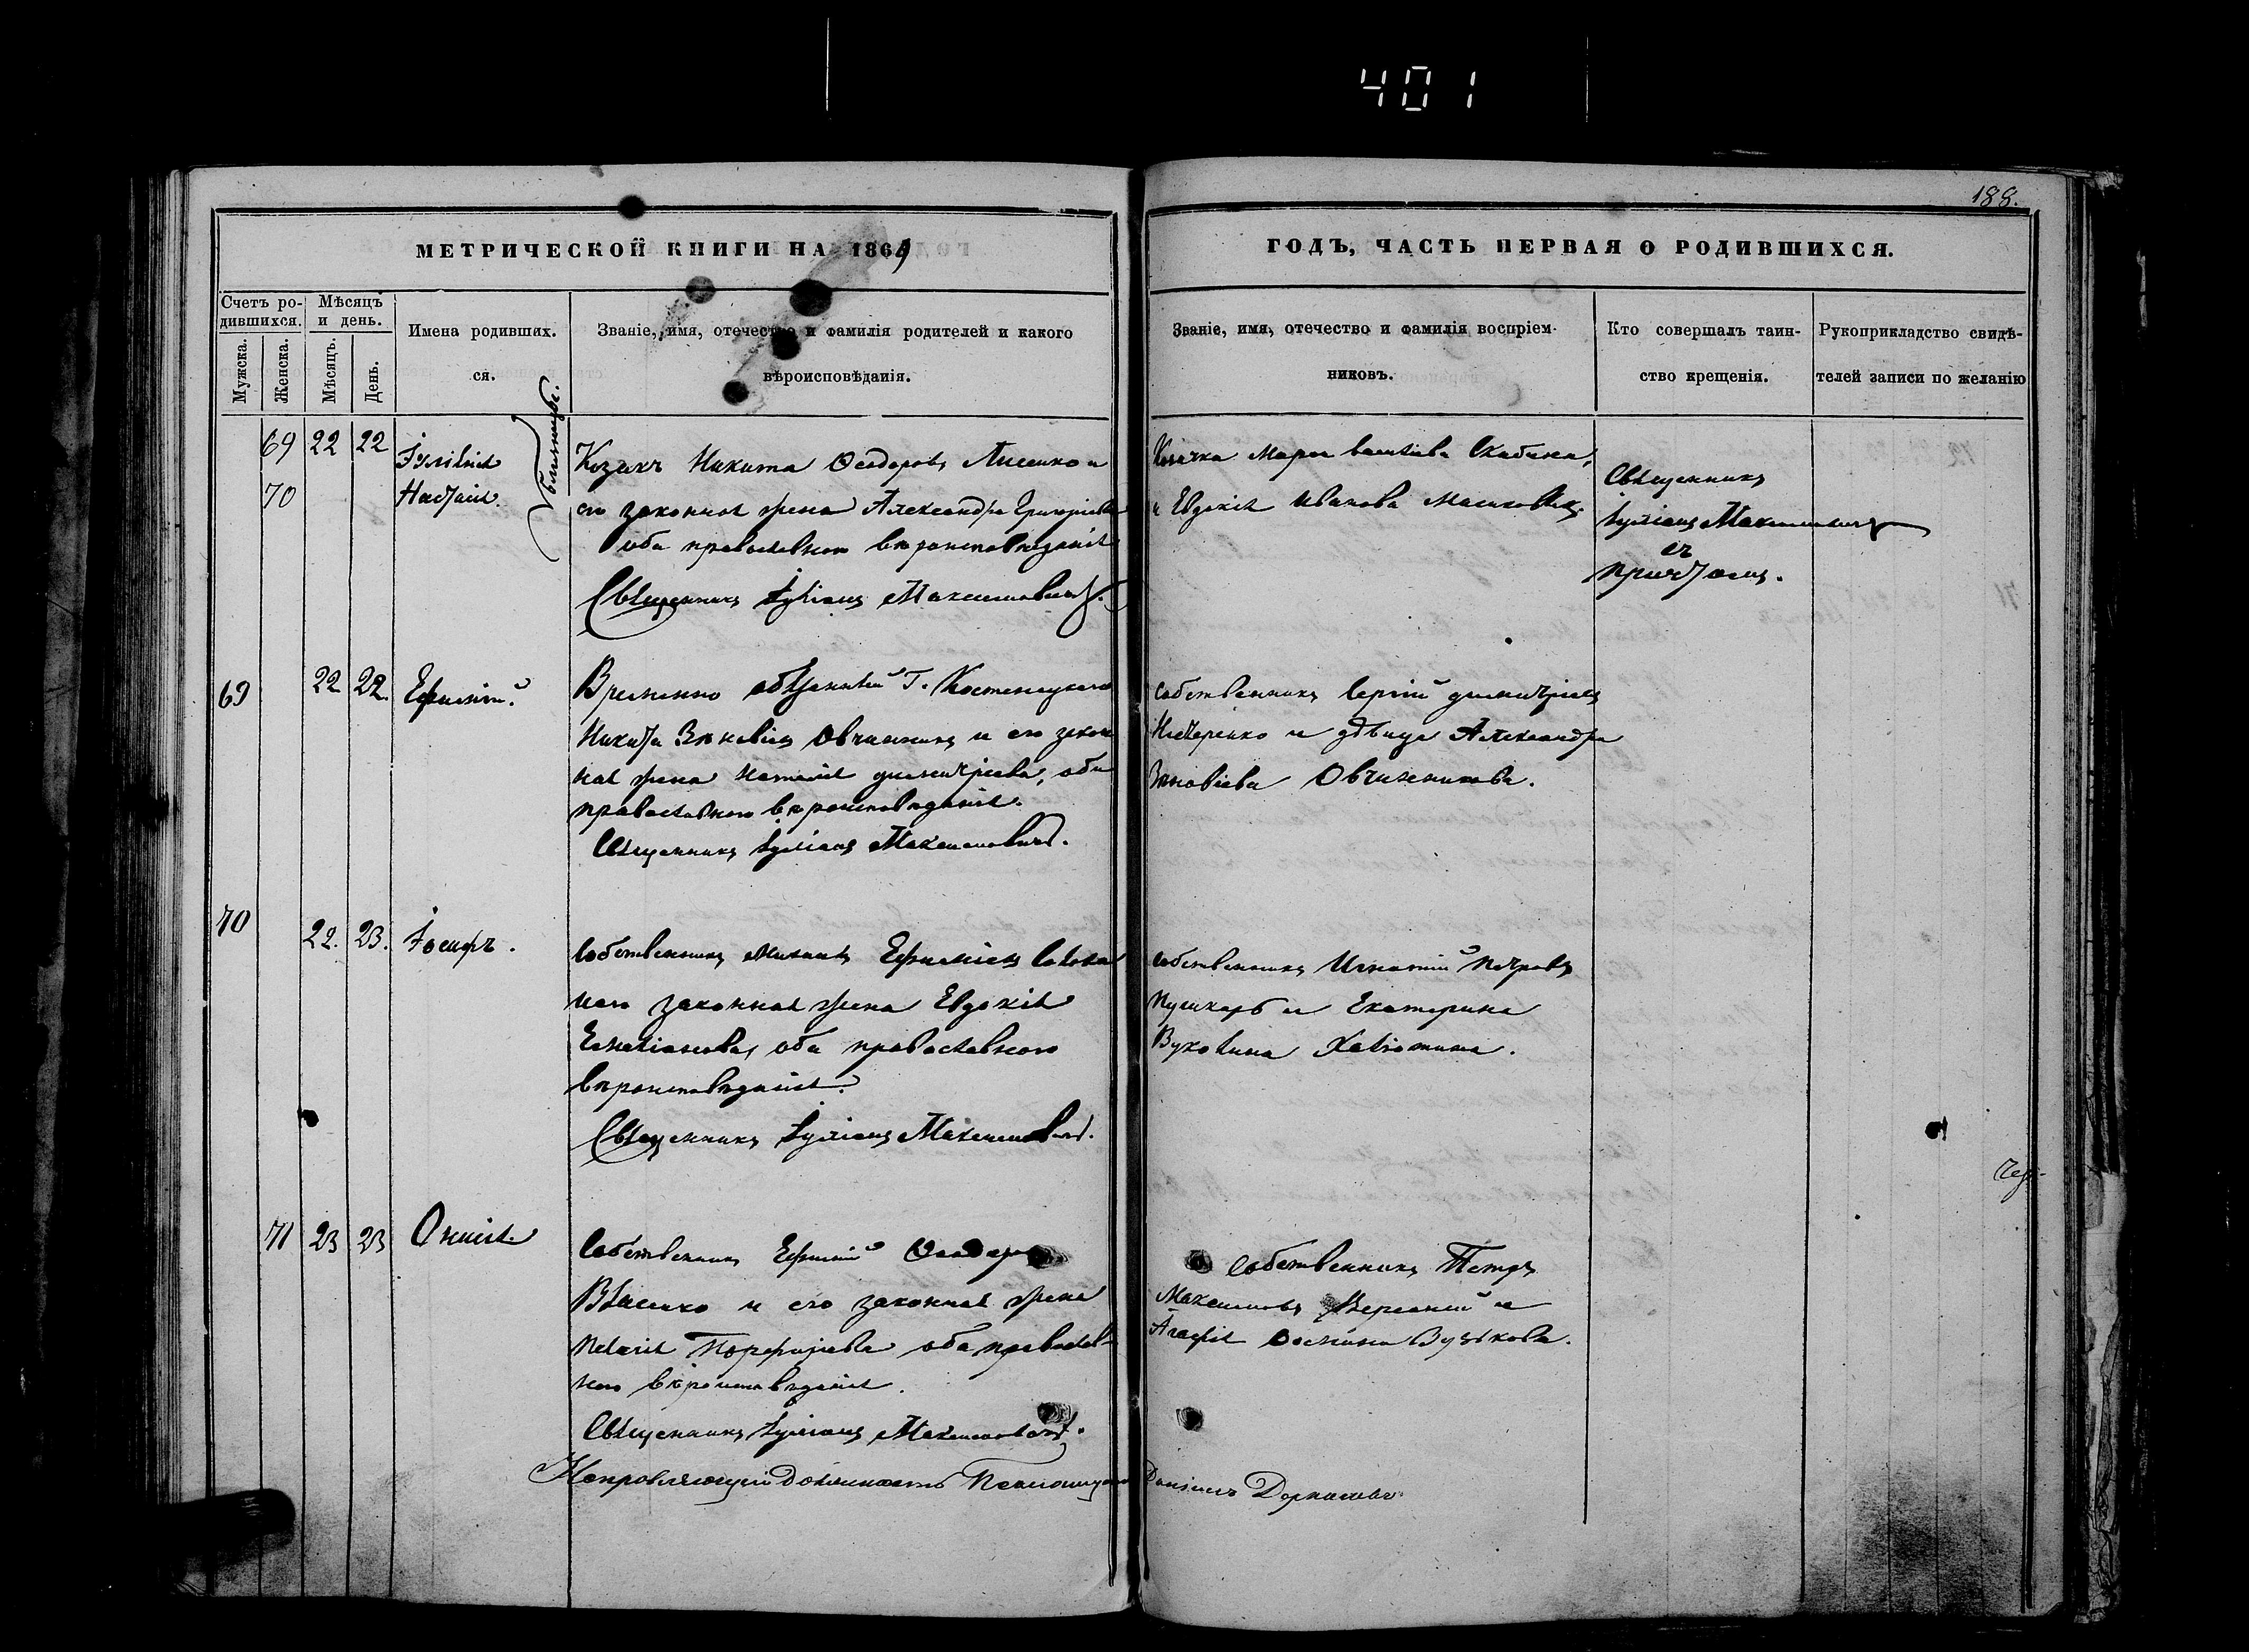 401
188.
МЕТРИЧЕСКОЙ КНИГИ НА 1869
ГОДЪ, ЧАСТЬ ПЕРВАЯ О РОДИВШИХСЯ.
Счетъ ро-
дившихся.
Мужска.
Женска.
Мѣсяцъ
и день.
Мѣсяцъ.
День.
Имена родивших.
ся.
Званіе, имя, отечество и фамилія родителей и какого
вѣроисповѣданія.
Званіе, имя, отечество и фамилія воспріем-
никовъ.
Кто совершалъ таин-
ство крещенія.
Рукоприкладство свидѣ-
телей записи по желанію
69 22 22
70
Іуліанія
Настасія.
близнецы.
Козакъ Никита Ѳеодоровъ Лисенко и
его законная жена Александра Григоріева
оба православнаго вѣроисповѣданія
Священникъ Іуліанъ Максимовичъ.
Козачка Марѳа
и Евдокія Иванова
Священникъ
Іуліанъ Максимовичъ
съ
причтомъ.
69 22 22. Ефимій.
Временно обязанный Г. Костенецкаго
Никита Зѣновіевъ Овчинникъ и его закон
ная жена Наталія Димитріева, оба
православнаго вѣроисповѣданія.
Священникъ Іуліанъ Максимовичъ.
Собственникъ Сергій Димитріевъ
Нестеренко и дѣвица Александра
Зѣновіева Овчинникова.
70 22. 23. Іосифъ.
Собственникъ Михаилъ Ефиміевъ
его законная жена Евдокія
оба православнаго
вѣроисповѣданія.
Священникъ Іуліанъ Максимовичъ.
Собственникъ Игнатій Петровъ
Пушкарь и Екатерина
71 23 23 Онисія
Собственникъ Ефимій Ѳеодоровъ
Власенко и его законная жена
Пелагія Порфиріева оба православ-
наго вѣроисповѣданія.
Священникъ Іуліанъ Максимовичъ.
Собственникъ Петръ
Максимовъ и
Агафія
Исправляющій должность Псаломщика Даніилъ